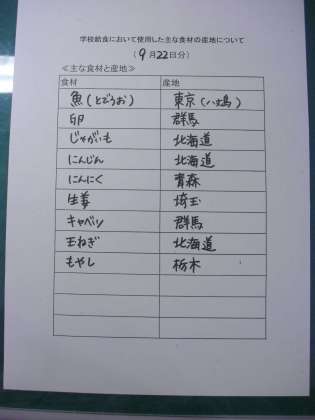 学校給食において使用した主な食材の産地について
(9月22日分)
≪主な食材と産地≫
食材 産地
魚(とびうお) 東京(八丈島)
卵 群馬
じゃがいも 北海道
にんじん 北海道
にんにく 青森
生姜 埼玉
キャベツ 群馬
玉ねぎ 北海道
もやし 栃木